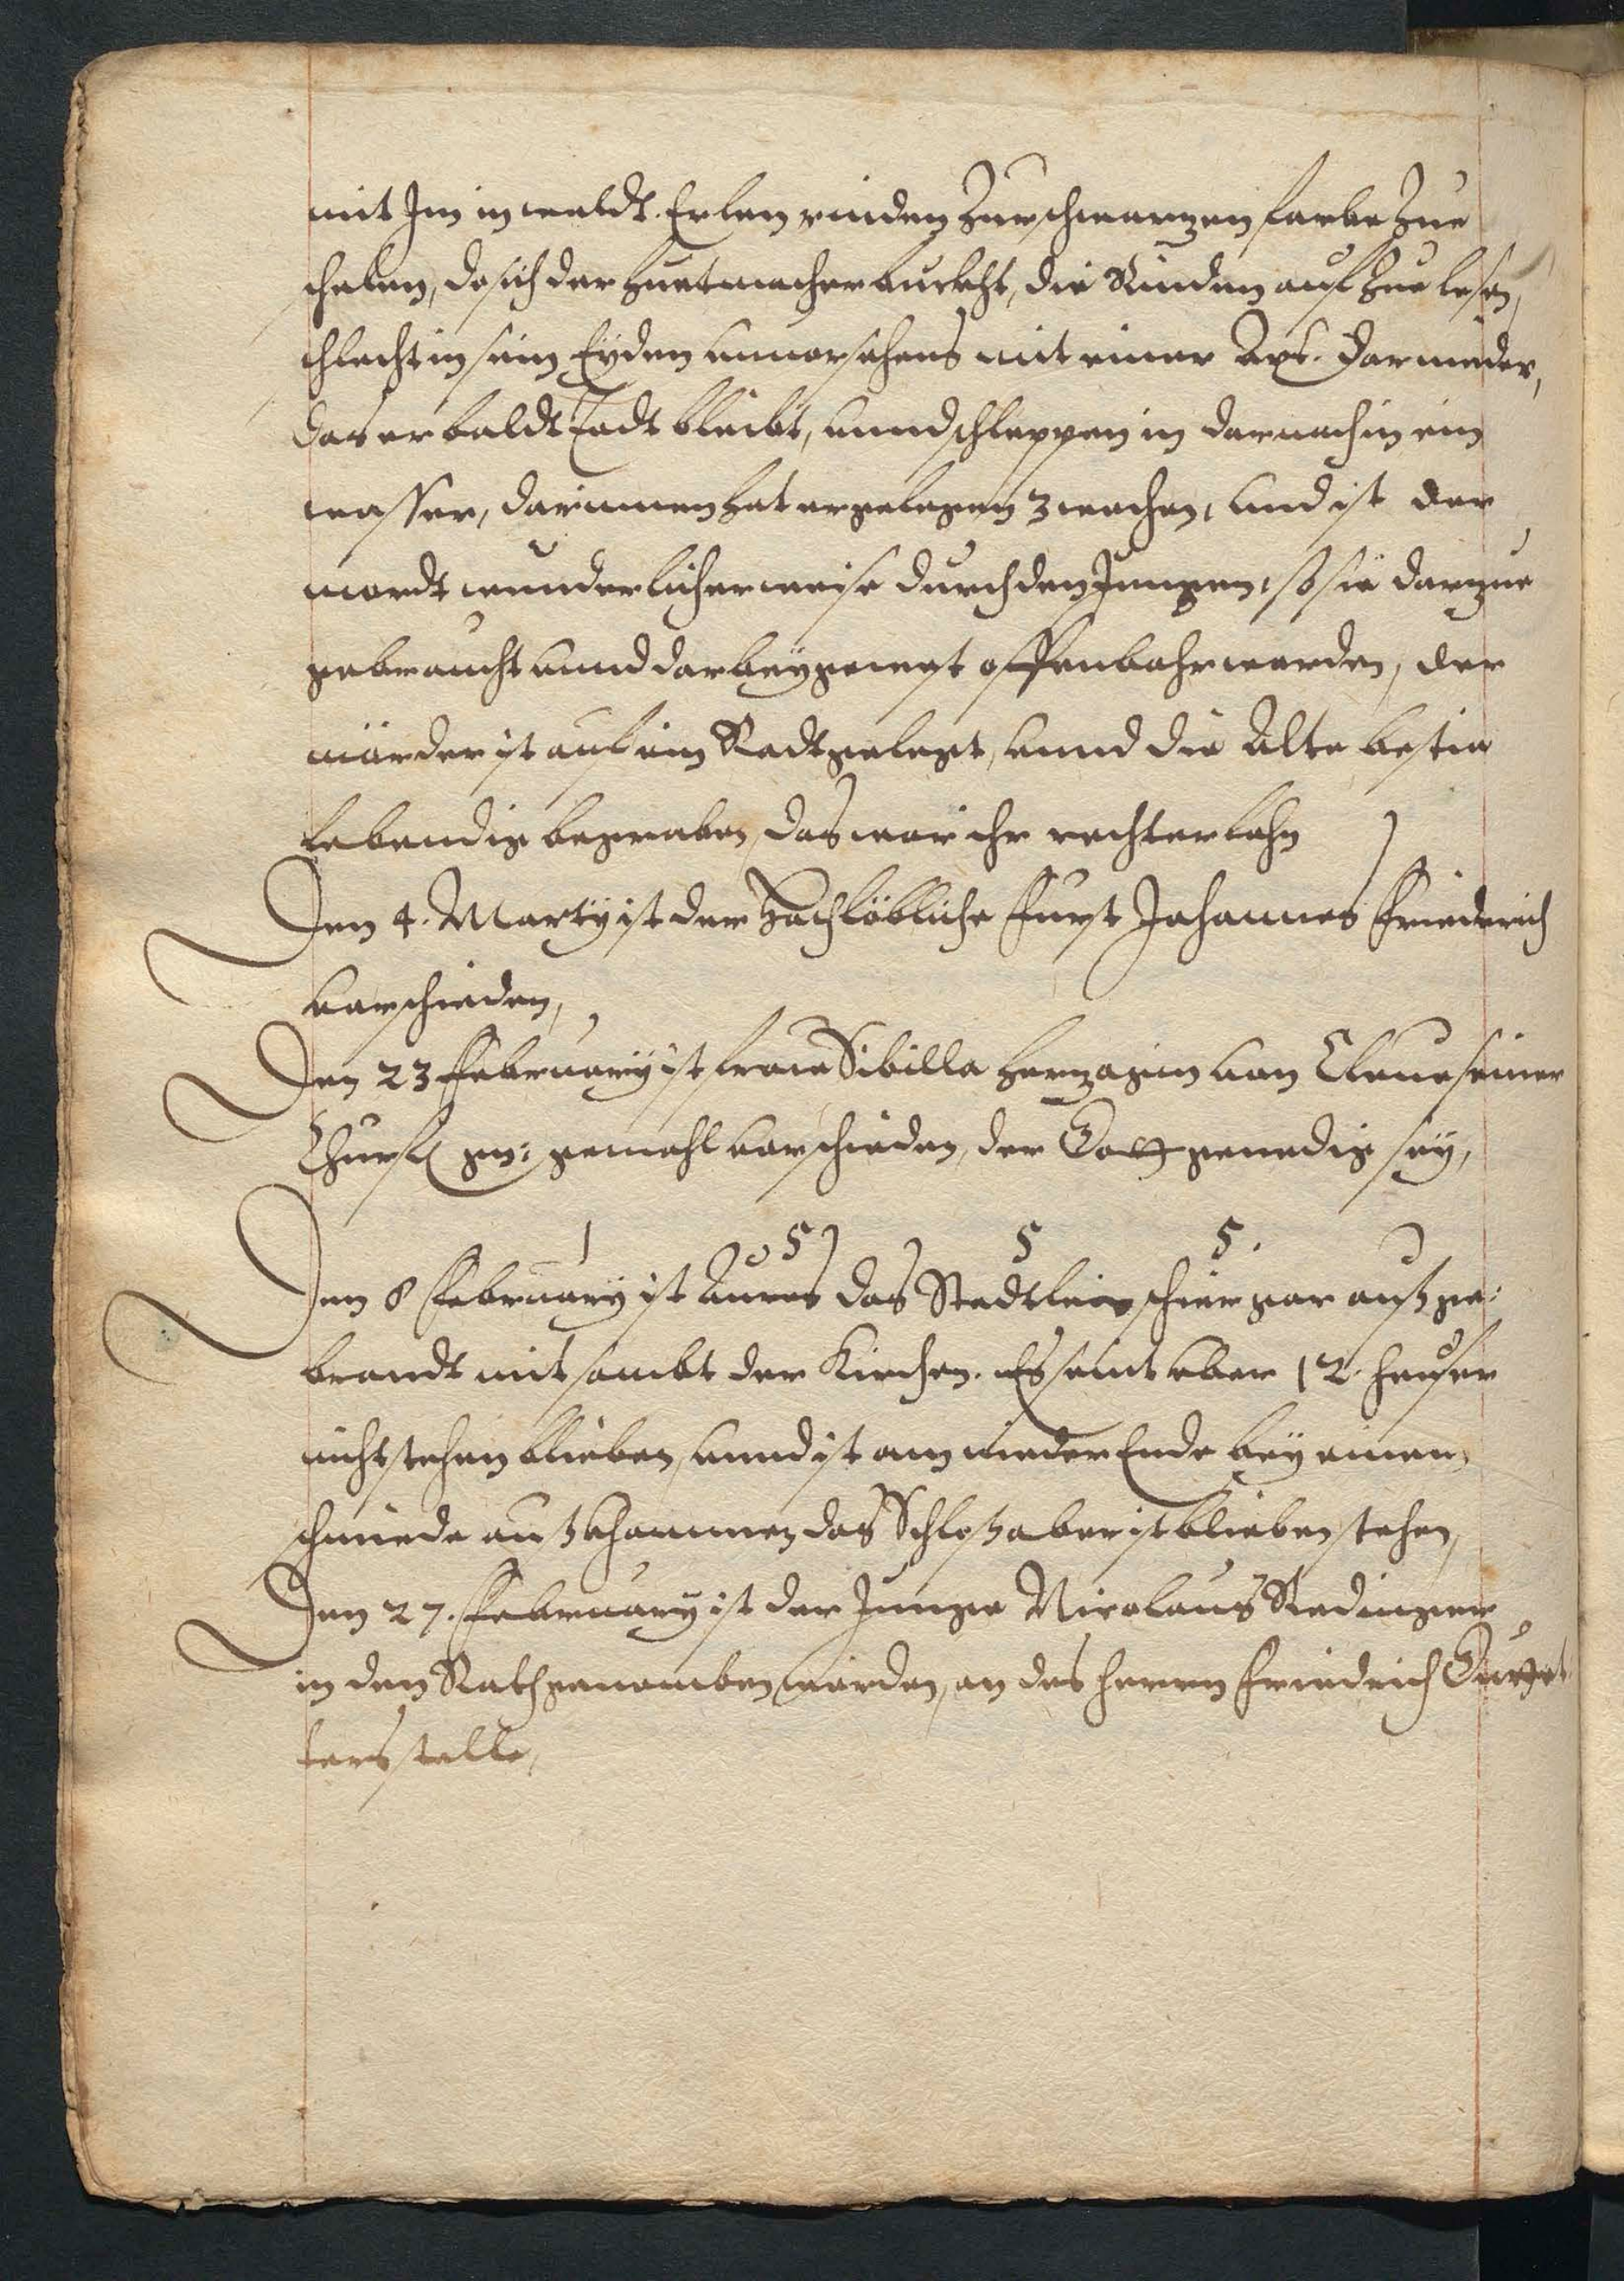 mit Jm in waldt. Erlen rinden Zur schwarzen farbe Zue
schelen, do sich der huetmacher buckht, die Rinden auf Zue lesen,
schlecht in sein Eyden unuorsehens mit einer Axt. darnieder,
das er baldt Todt bleibt, unnd schleppen in darnach in ein
wasser, darinnen hat er gelegen 3 wochen, und ist der
mordt wunderlicher weise durch den Jungen, so sie darzue
gebraucht unnd darbey gewest offenbahr worden, der
mörder ist auf ein Radt gelegt, unnd die Alte bestia
lebendig begraben, das war ihr rechter lohn
Den 4. Marty ist der Hochlöbliche Furst Johannes Friederich
vorschieden,
Den 23 February ist fraw Sibilla herzogin von Cleue seiner
Churf gn: gemahl vorschieden, der Gott genedig sey,
1 5 5 5.
Den 8 February ist Auras das Stedtlein schier gar auß ge:
brandt mit sambt der Kirchen. Es seint aber 12. heuser
nicht stehen blieben, unnd ist am nieder Ende bey einem
schmiede auß khommen das Schloß aber ist blieben stehen,
Den 27. February ist der Junge Nicolaus Redinger
in den Rath genomben worden, an des herrn Friedrich
ters stelle,